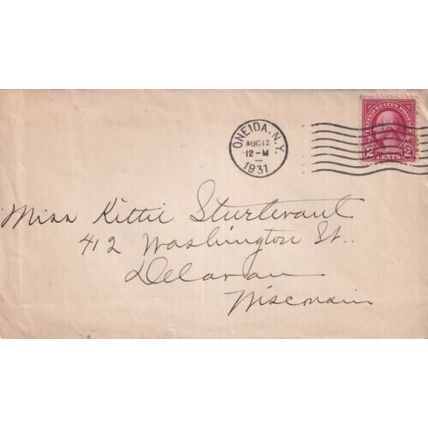 ONEIDA, N.Y.
AUG 12
12-M
1931
UNITED STATES POSTAGE
2 CENTS 2
Miss Kittie Sturtevant
412 Washington St.
Delavan
Wisconsin